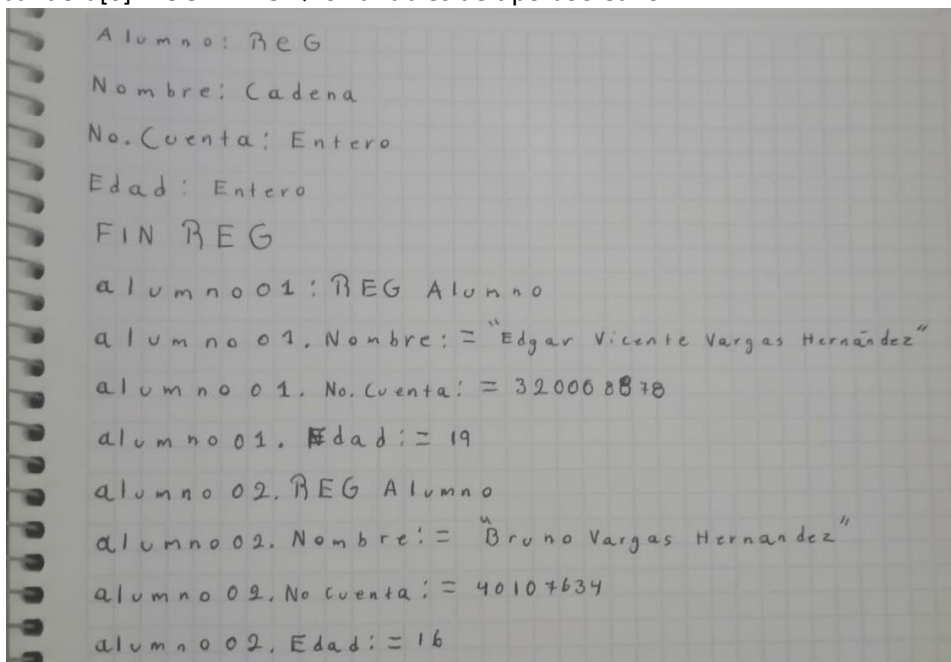 Alumno: ReG
Nombre: Cadena
No. Cuenta: Entero
Edad: Entero
FIN REG
alumno01: REG Alumno
alumno01. Nombre: = "Edgar Vicente Vargas Hernández"
alumno01. No. Cuenta: = 320008878
alumno01. Edad: = 19
alumno02. REG Alumno
alumno02. Nombre: = "Bruno Vargas Hernandez"
alumno02. No Cuenta: = 40107634
alumno02. Edad: = 16